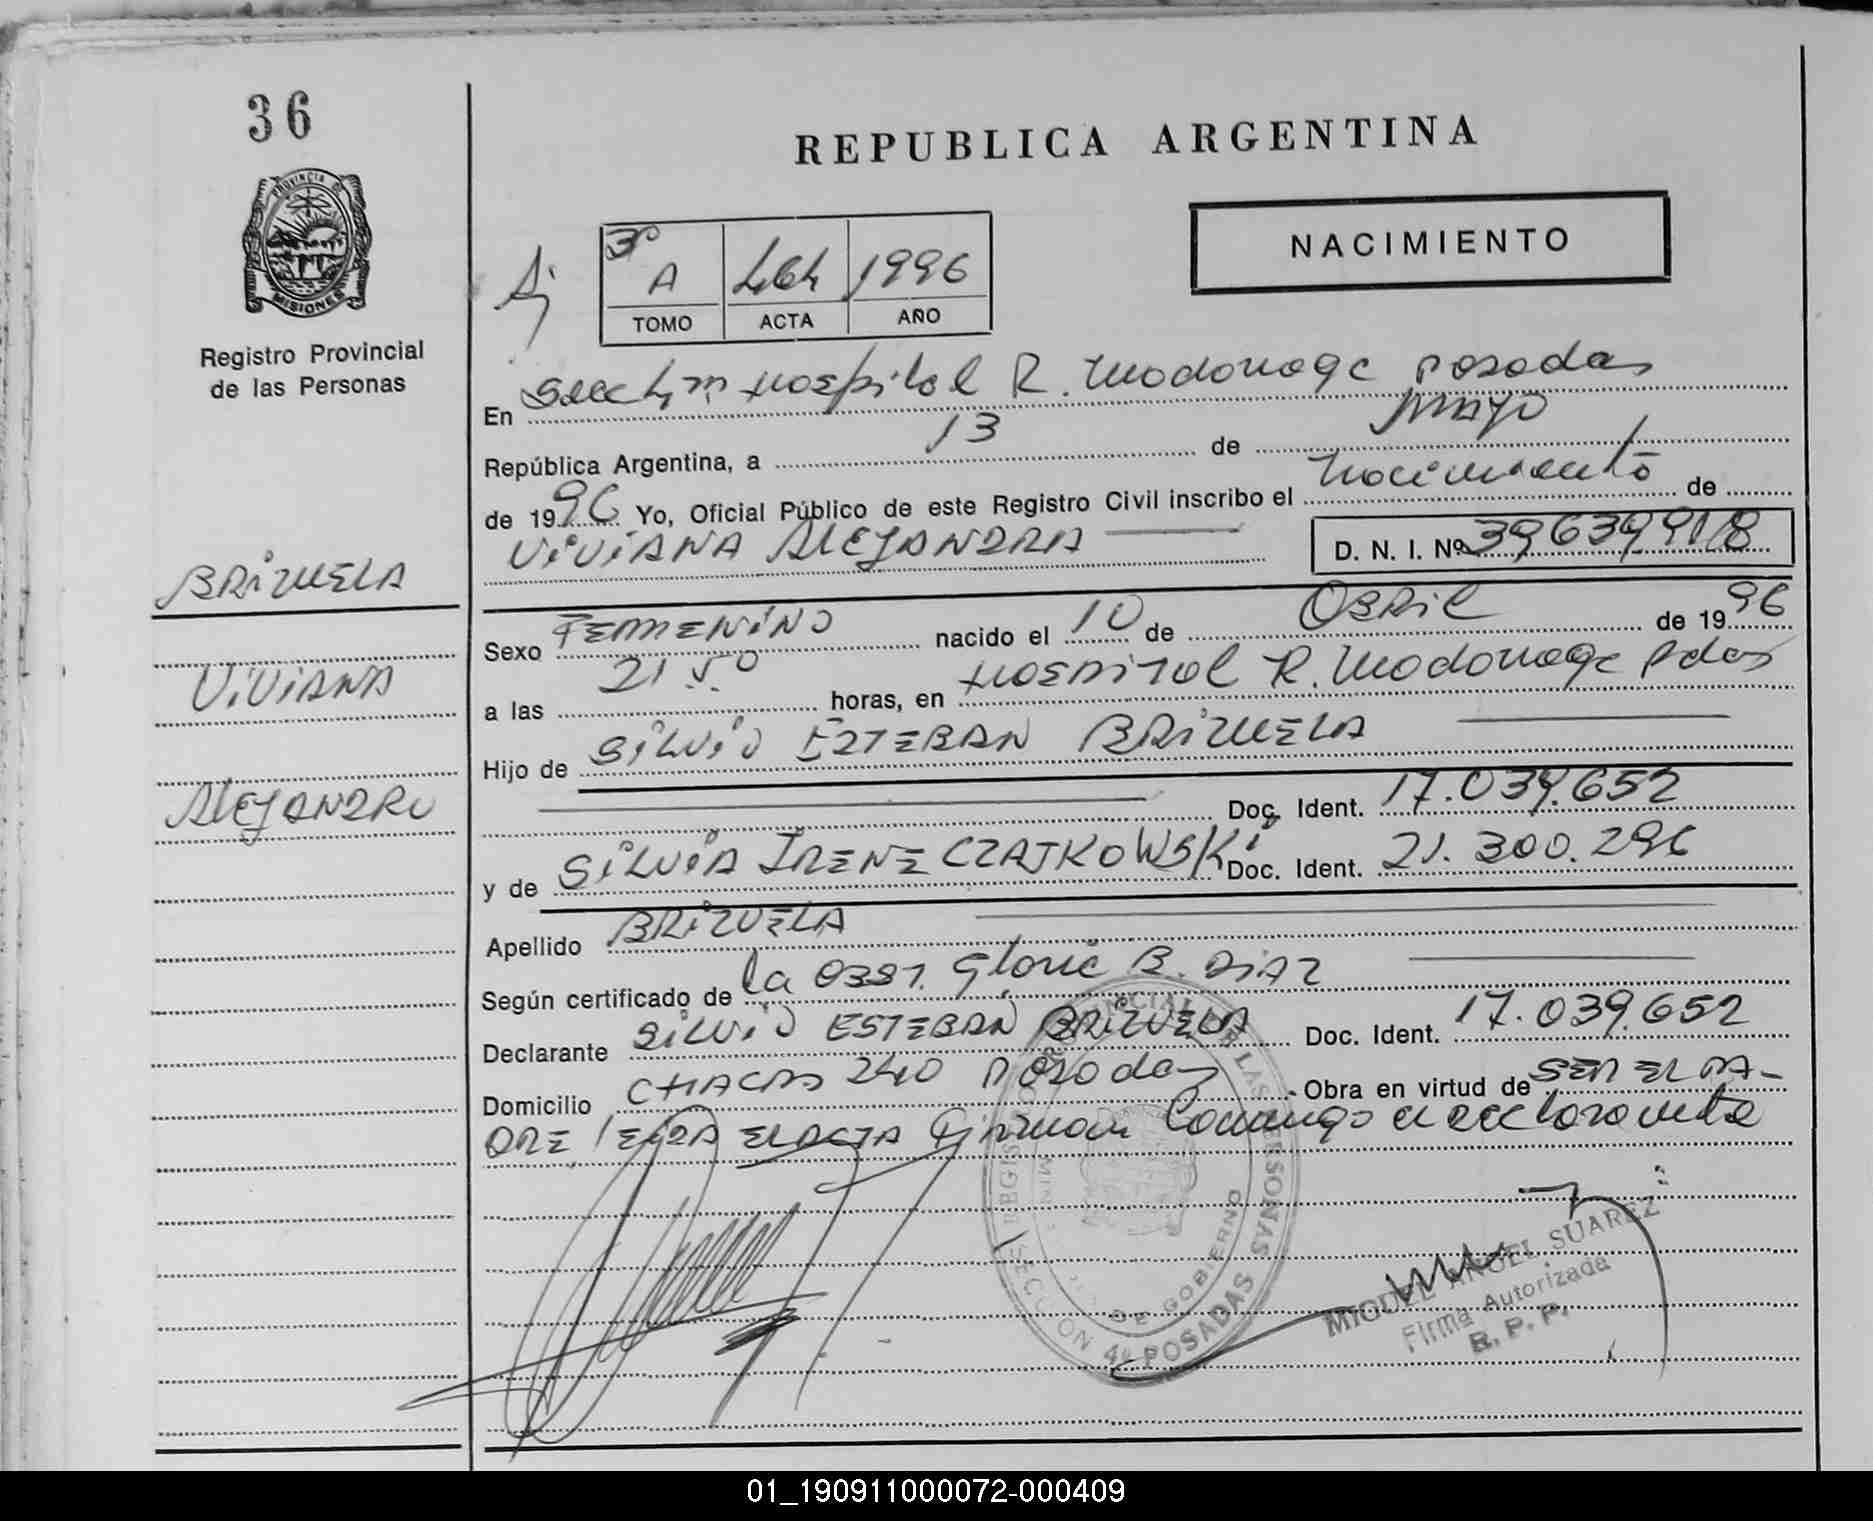 36
REPUBLICA ARGENTINA
PROVINCIA DE
MISIONES
Registro Provincial
de las Personas
NACIMIENTO
3º
A 464 1996
TOMO ACTA AÑO
En Hospital R. Madariaga Posadas
República Argentina, a 13 de mayo
de 1996 Yo, Oficial Público de este Registro Civil inscribo el nacimiento de
VIVIANA ALEJANDRA D. N. I. Nº 39639918
BRIZUELA
VIVIANA
ALEJANDRA
Sexo FEMENINO nacido el 10 de ABRIL de 1996
a las 21 50 horas, en HOSPITAL R. Madariaga Pdas
Hijo de SILVIO ESTEBAN BRIZUELA
Doc. Ident. 17.039.652
y de SILVIA IRENE CZAJKOWSKI Doc. Ident. 21.300.296
Apellido BRIZUELA
Según certificado de la OBST. Gloria B. DIAZ
Declarante SILVIO ESTEBAN BRIZUELA Doc. Ident. 17.039.652
Domicilio CHACAS 240 Posadas Obra en virtud de SER EL PA-
DRE LEIDA EL ACTA Firman Conmigo el declarante
REGISTRO PROVINCIAL DE LAS PERSONAS
MINISTERIO DE GOBIERNO
SECCION 4ª POSADAS
MIGUEL ANGEL SUAREZ
Firma Autorizada
R. P. P.
01_190911000072-000409